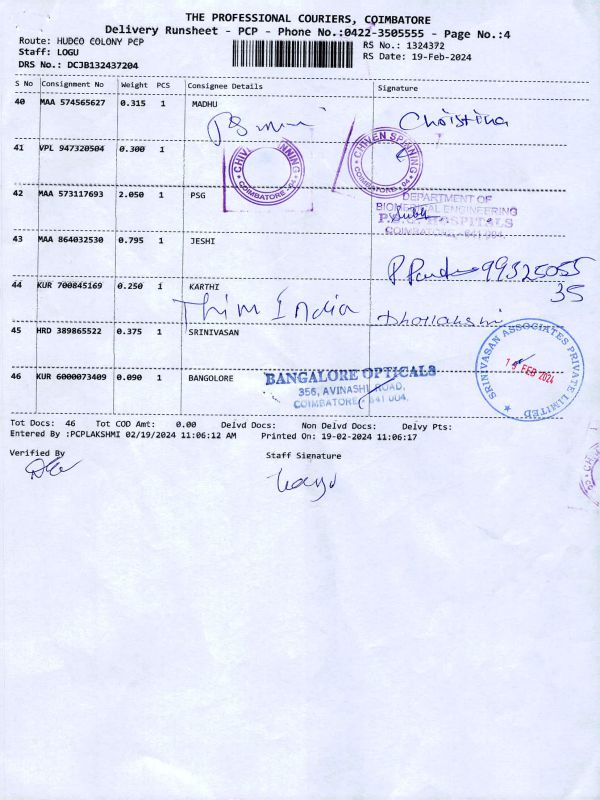 THE PROFESSIONAL COURIERS, COIMBATORE
Delivery Runsheet - PCP - Phone No.:0422-3505555 - Page No.:4
Route: HUDCO COLONY PCP
Staff: LOGU
DRS No.: DCJB132437204
RS No.: 1324372
RS Date: 19-Feb-2024
S No Consignment No Weight PCS Consignee Details Signature
40 MAA 574565627 0.315 1 MADHU
Christina
41 VPL 947320504 0.300 1
CHIVEN SPINNING
COIMBATORE - 04
42 MAA 573117693 2.050 1 PSG
DEPARTMENT OF
BIOMEDICAL ENGINEERING
HOSPITALS
COIMBATORE - 641 004.
43 MAA 864032530 0.795 1 JESHI
9932505535
44 KUR 700845169 0.250 1 KARTHI
Thim India
45 HRD 389865522 0.375 1 SRINIVASAN
SRINIVASAN ASSOCIATES PRIVATE LIMITED
FEB 2024
46 KUR 6000073409 0.090 1 BANGOLORE
BANGALORE OPTICALS
356, AVINASHI ROAD,
COIMBATORE - 641 004.
Tot Docs: 46 Tot COD Amt: 0.00 Delvd Docs: Non Delvd Docs: Delvy Pts:
Entered By :PCPLAKSHMI 02/19/2024 11:06:12 AM Printed On: 19-02-2024 11:06:17
Verified By Staff Signature